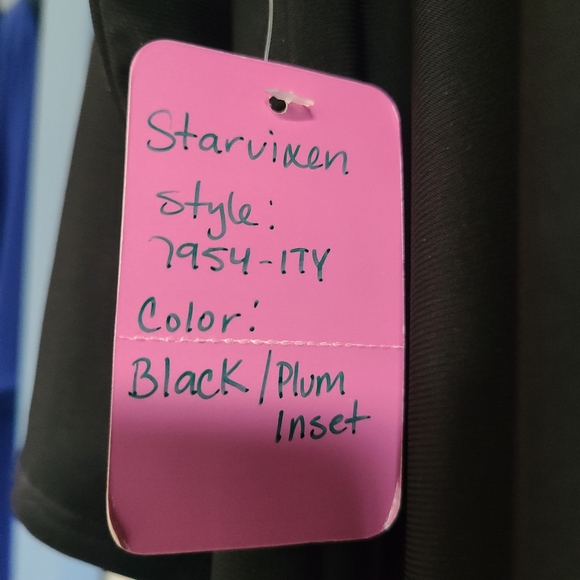 Starvixen
Style:
7954-ITY
Color:
Black/Plum
Inset